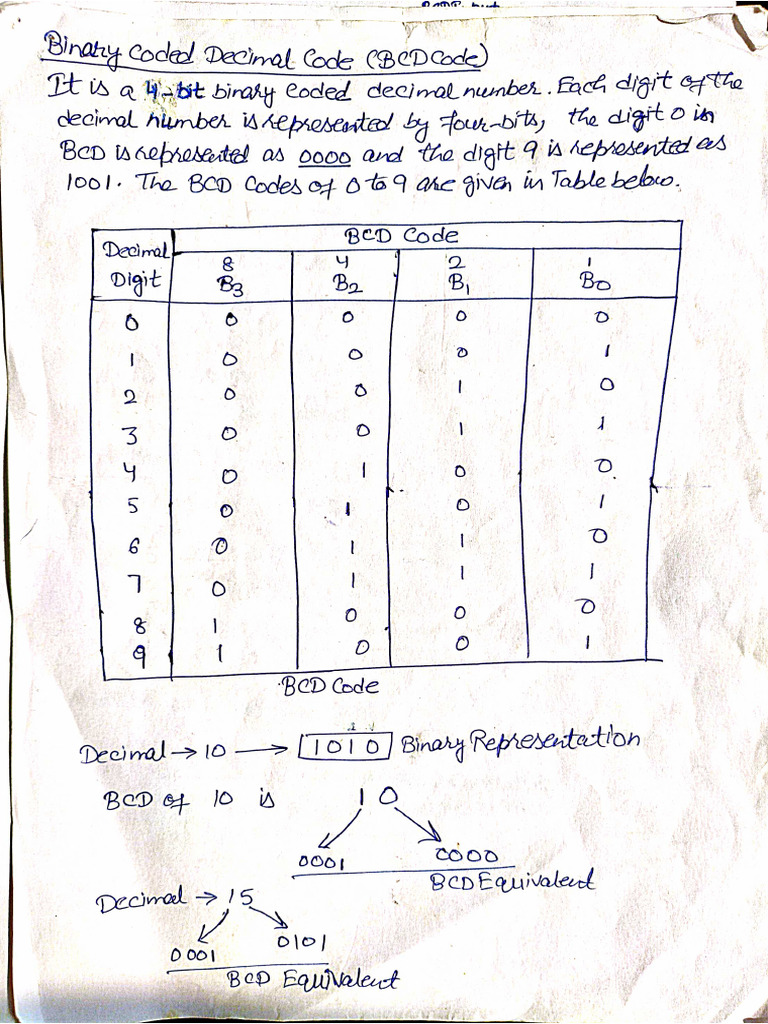 Binary Coded Decimal Code (BCD Code)
It is a 4-bit binary coded decimal number. Each digit of the
decimal number is represented by four-bits, the digit 0 in
BCD is represented as 0000 and the digit 9 is represented as
1001. The BCD Codes of 0 to 9 are given in Table below.
Decimal Digit BCD Code
8 4 2 1
B3 B2 B1 B0
0 0 0 0 0
1 0 0 0 1
2 0 0 1 0
3 0 0 1 1
4 0 1 0 0
5 0 1 0 1
6 0 1 1 0
7 0 1 1 1
8 1 0 0 0
9 1 0 0 1
BCD Code
Decimal → 10 → 1010 Binary Representation
BCD of 10 is 10
0001 0000
BCD Equivalent
Decimal → 15
0001 0101
BCD Equivalent